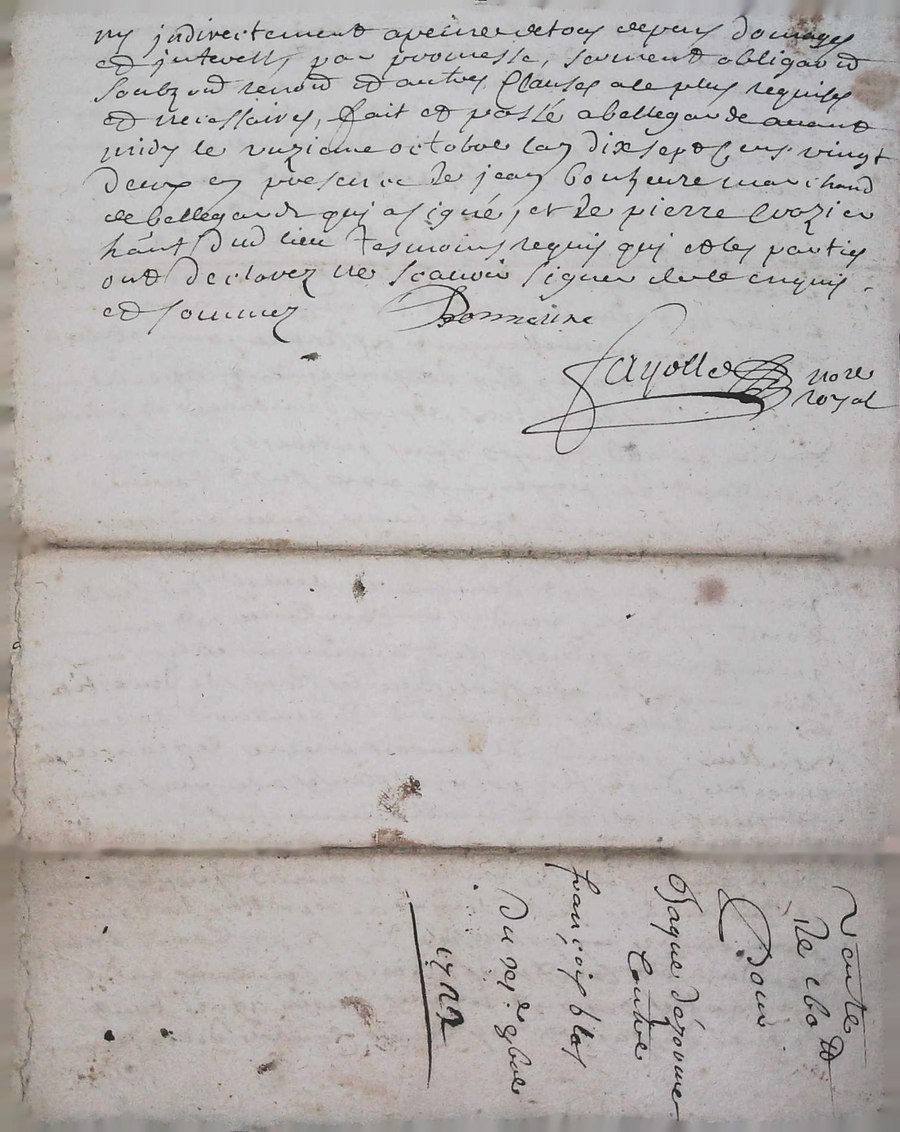 ny indirectement a peine de tous depens domages
et interests, par promesse, serment obligaõn
soubzõn renõn et autres clauses a ce plus requises
et necessaires, fait et passé a bellegarde avant
midy le unzieme octobre lan dix sept cens vingt
deux en presence de jean bonheure marchand
de bellegarde qui a signé, et de pierre crozier
hãnt dud lieu tesmoins requis qui et les parties
ont declarez ne scavoir signer de ce enquis
et sommez
Fayolle nore
royal
Vente
Pour
Contre
françois blas
Du 8bre
1722